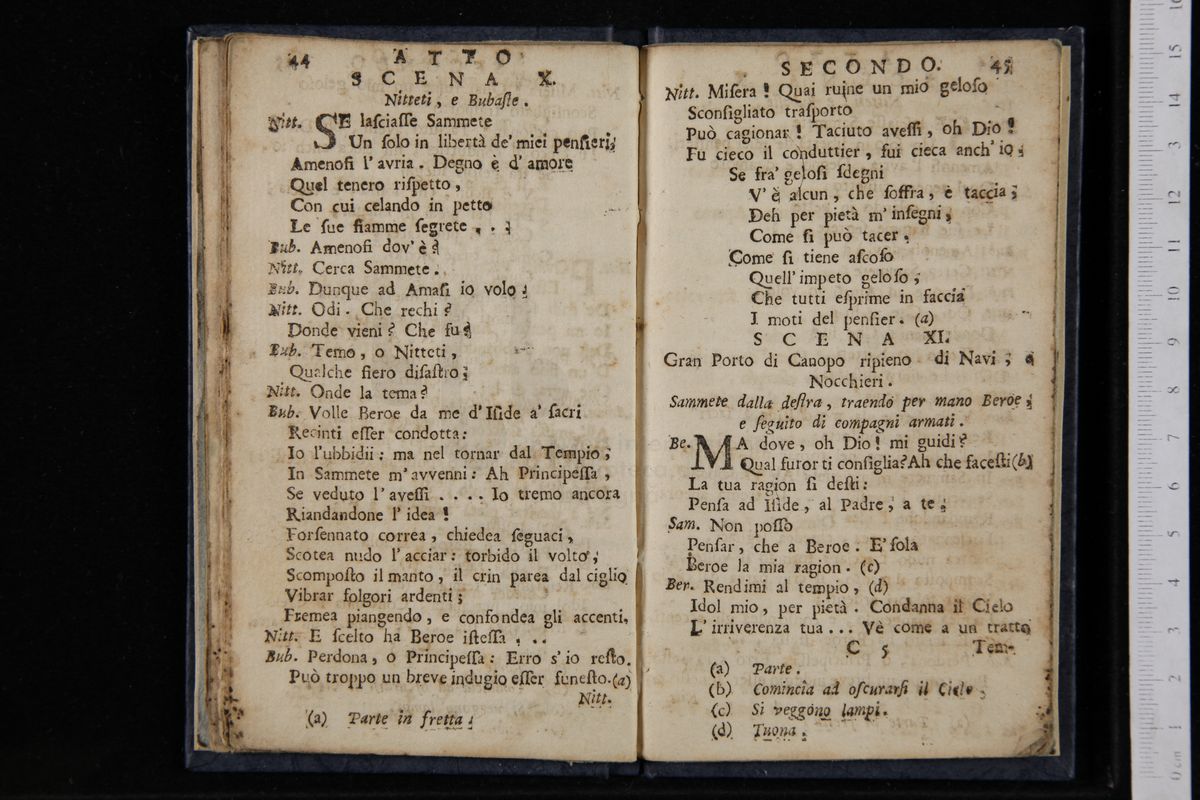 44
ATTO
SCENA X.
Nitteti, e Bubaſte.
Nitt. SE laſciaſſe Sammete
Un ſolo in libertà de' miei penſieri,
Amenoſi l'avria. Degno è d'amore
Quel tenero riſpetto,
Con cui celando in petto
Le ſue fiamme ſegrete . . .
Bub. Amenoſi dov'è?
Nitt. Cerca Sammete.
Bub. Dunque ad Amaſi io volo.
Nitt. Odi. Che rechi?
Donde vieni? Che fu?
Bub. Temo, o Nitteti,
Qualche fiero diſaſtro.
Nitt. Onde la tema?
Bub. Volle Beroe da me d'Iſide a' ſacri
Recinti eſſer condotta:
Io l'ubbidii: ma nel tornar dal Tempio,
In Sammete m'avvenni: Ah Principeſſa,
Se veduto l'aveſſi . . . . Io tremo ancora
Riandandone l'idea!
Forſennato correa, chiedea ſeguaci,
Scotea nudo l'acciar: torbido il volto,
Scompoſto il manto, il crin parea dal ciglio
Vibrar folgori ardenti;
Fremea piangendo, e confondea gli accenti.
Nitt. E ſcelto ha Beroe iſteſſa . . .
Bub. Perdona, o Principeſſa: Erro s'io reſto.
Può troppo un breve indugio eſſer funeſto. (a)
Nitt.
(a) Parte in fretta.
SECONDO. 45
Nitt. Miſera! Quai ruine un mio geloſo
Sconſigliato traſporto
Può cagionar! Taciuto aveſſi, oh Dio!
Fu cieco il conduttier, fui cieca anch'io.
Se fra' geloſi ſdegni
V'è alcun, che ſoffra, e taccia;
Deh per pietà m'inſegni,
Come ſi può tacer.
Come ſi tiene aſcoſo
Quell'impeto geloſo,
Che tutti eſprime in faccia
I moti del penſier. (a)
SCENA XI.
Gran Porto di Canopo ripieno di Navi, e
Nocchieri.
Sammete dalla deſtra, traendo per mano Beroe,
e ſeguito di compagni armati.
Be. MA dove, oh Dio! mi guidi?
Qual furor ti conſiglia? Ah che faceſti (b)
La tua ragion ſi deſti:
Penſa ad Iſide, al Padre, a te.
Sam. Non poſſo
Penſar, che a Beroe. E' ſola
Beroe la mia ragion. (c)
Ber. Rendimi al tempio, (d)
Idol mio, per pietà. Condanna il Cielo
L'irriverenza tua... Vè come a un tratto
C 5 Tem-
(a) Parte.
(b) Comincia ad oſcurarſi il Cielo.
(c) Si veggono lampi.
(d) Tuona.